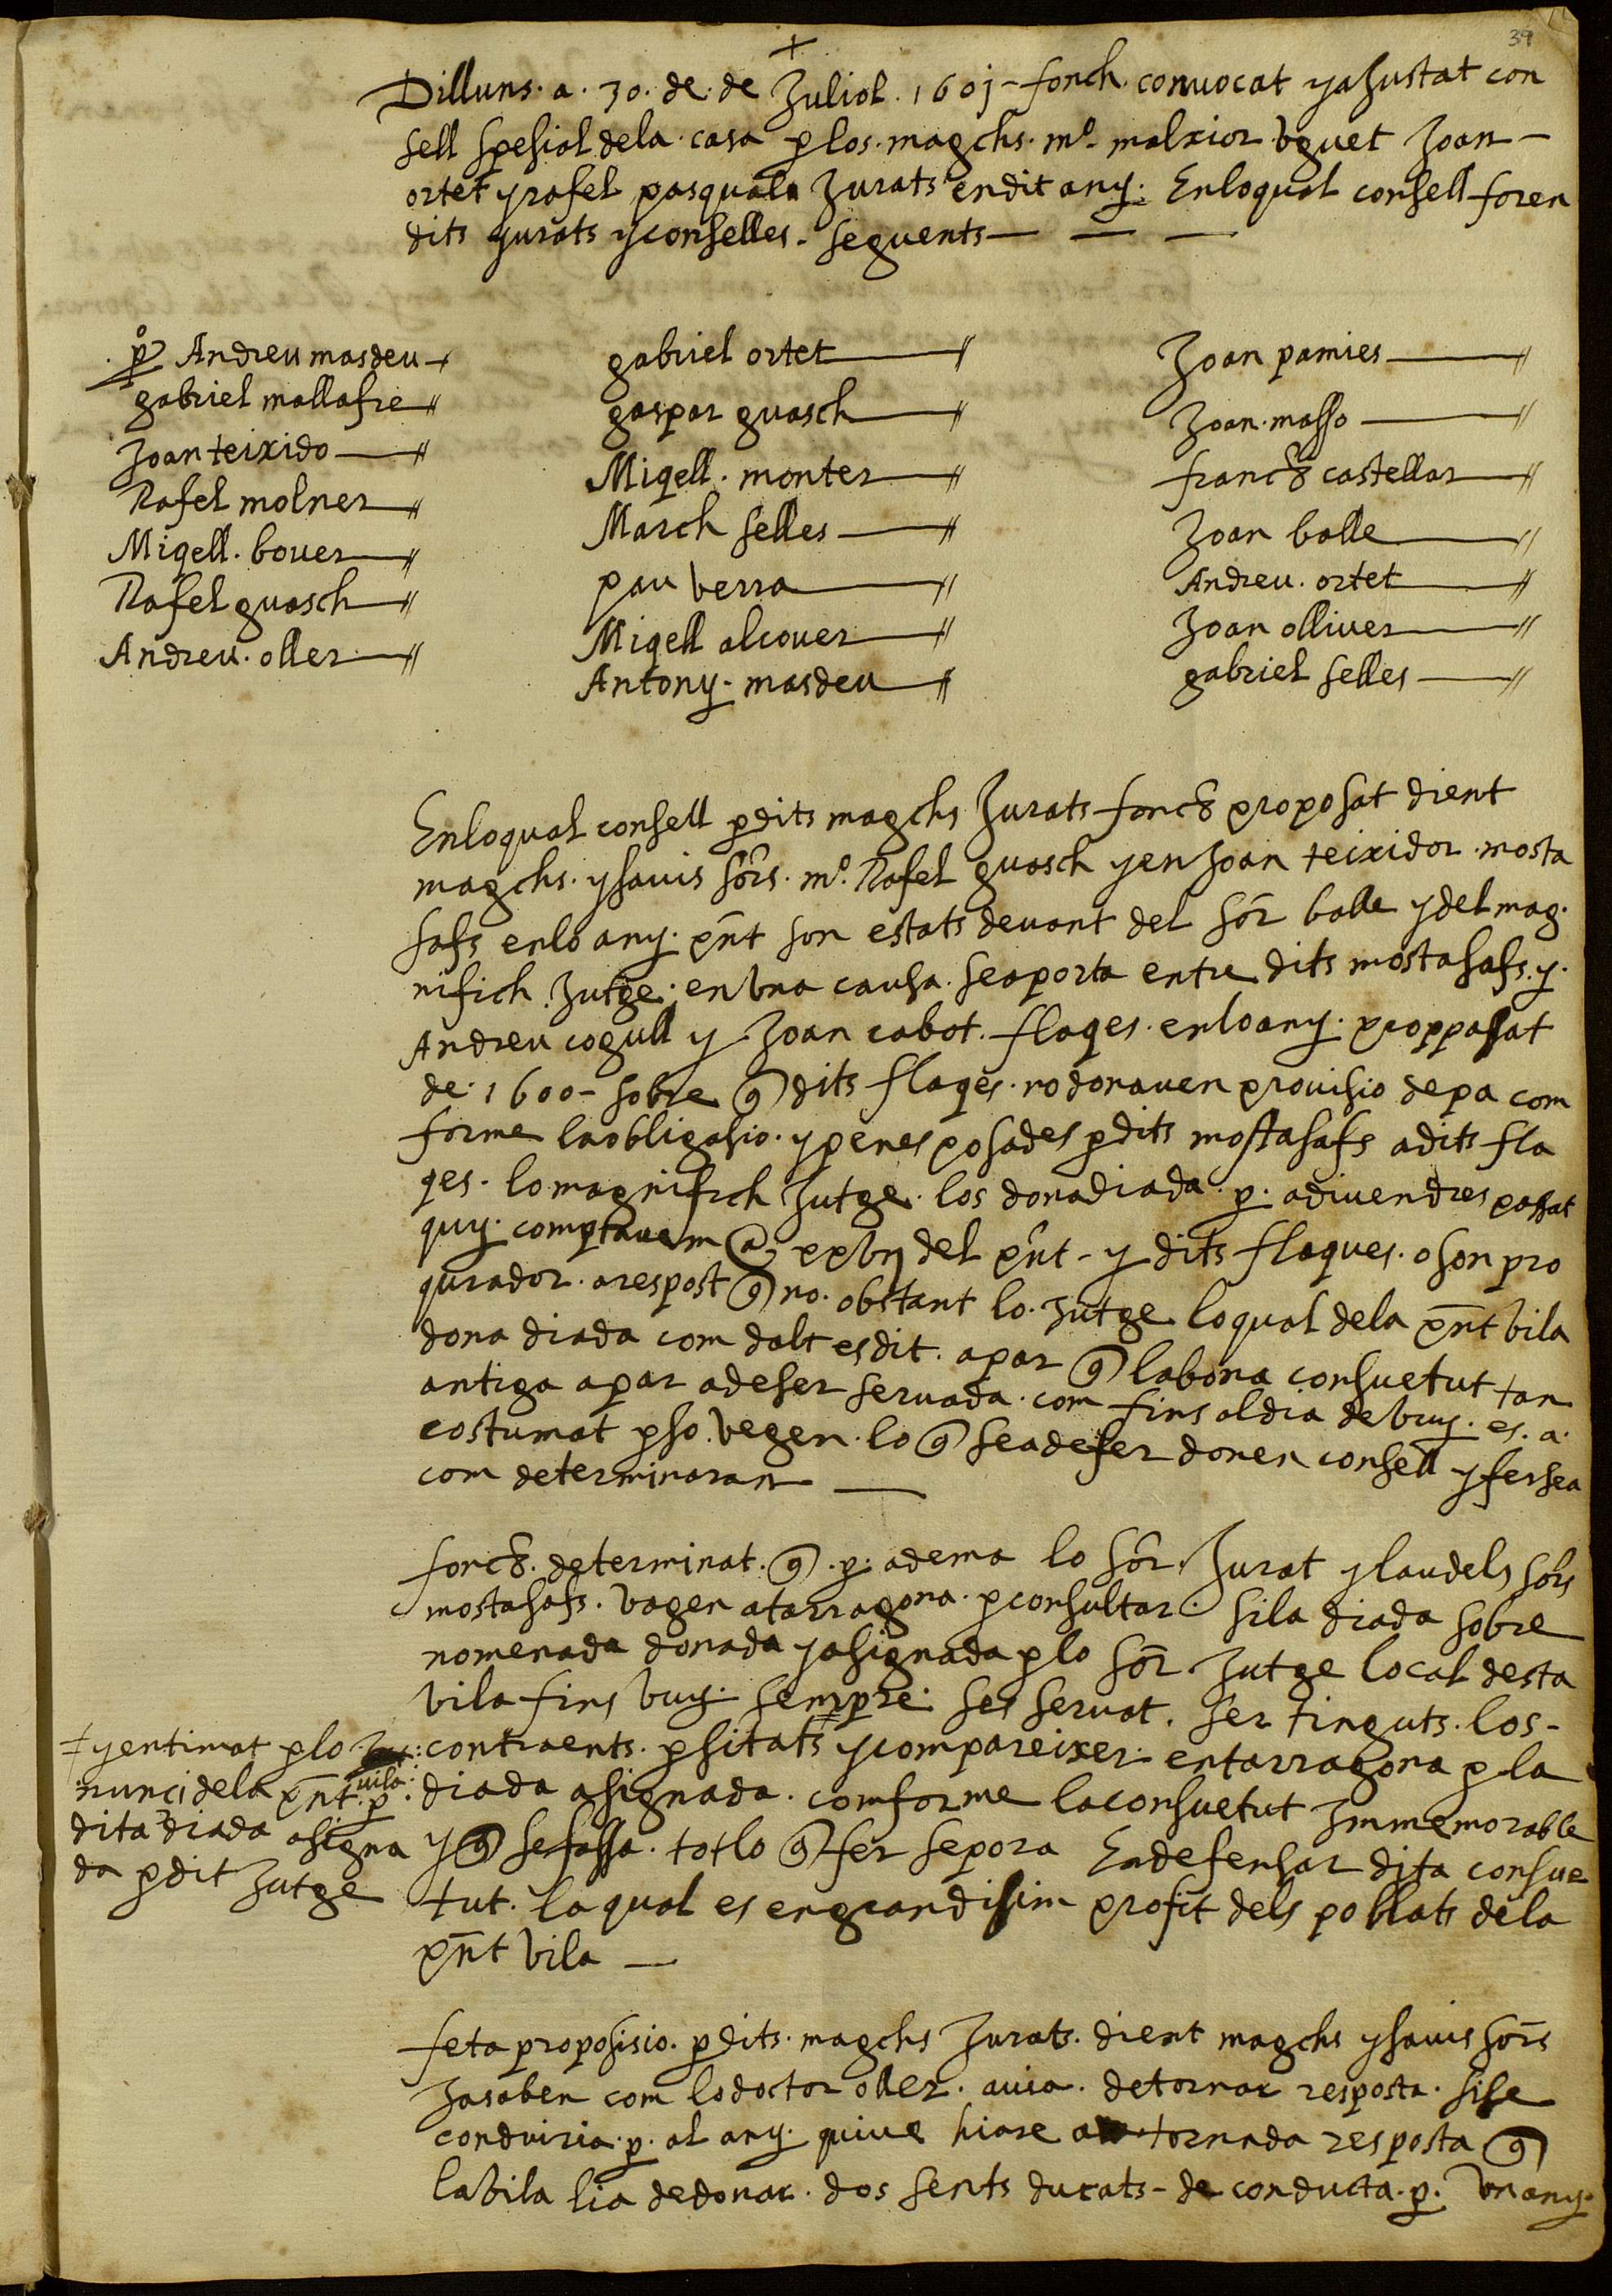 39
+
Dilluns. a. 30. de. de Juliol. 1601 - fonch. convocat yaJustat con
sell spesial dela. casa p los. magchs. mº. malxior. vguet Joan -
ortet y rafel pasqual Jurats endit any. Enloqual consell foren
dits yurats y conselles. seguents
pº Andreu masdeu
gabriel mallafre
Joan teixido
Rafel molner
Miqell. bover
Rafel guasch
Andreu. oller
gabriel ortet
gaspar guasch
Miqell. monter
March selles
pau verra
Miqell alcover
Antony. masdeu
Joan pamies
Joan. masso
franch castellar
Joan balle
Andreu. ortet
Joan olliver
gabriel selles
Enloqual consell p dits magchs Jurats fonch proposat dient
magchs. y savis sors. mº. Rafel guasch y en Joan teixidor. mosta
safs enlo any. pnt son estats devant del sor balle y del mag.
nifich. Jutge. en vna causa. seaporta entre dits mostasafs. y.
Andreu cogull y Joan cabot. flaqes. enlo any. proppassat
de. 1600 - sobre q dits flaqes. no donaven provisio de pa com
forme la obligasio. y penes posades p dits mostasafs a dits fla
qes. lo magnifich Jutge. los dona diada. p. a divendres passat
quy. comptavem a xxvij del pnt - y dits flaques. o son pro
qurador. a respost q no. obstant lo. Jutge loqual dela pnt vila
dona diada com dalt es dit. apar q la bona consuetut tan
antiga apar a deser servada. com fins al dia de vuy. es. a.
costumat p so. vegen. lo q sea defer donen consell y fersea
com determinaran
fonch. determinat. q. p. adema lo sor. Jurat y laudels sors
mostasafs. vagen a tarragona. p consultar. si la diada sobre
nomenada donada y asignada p lo sor. Jutge local desta
vila fins vuy. sempre. ses servat. ser tinguts. los -
contraents. p sitats y compareixer. en tarragona p la
diada asignada. comforme la consuetut Jmmemorable
y q se fassa. tot lo q fer se pora En defensar dita consue
tut. la qual es en grandisim profit dels poblats dela
pnt vila
‡ y entimat p lo
nunci dela pnt. vila p
dita diada asigna
da p dit Jutge
feta proposisio. p dits. magchs Jurats. dient magchs y savis sors
Ja saben com lo doctor oller. avia. de tornar resposta. si se
conduiria. p. al any. quive hiare a tornada resposta q
la vila lia de donar. dos sents ducats - de conducta. p. vn any.